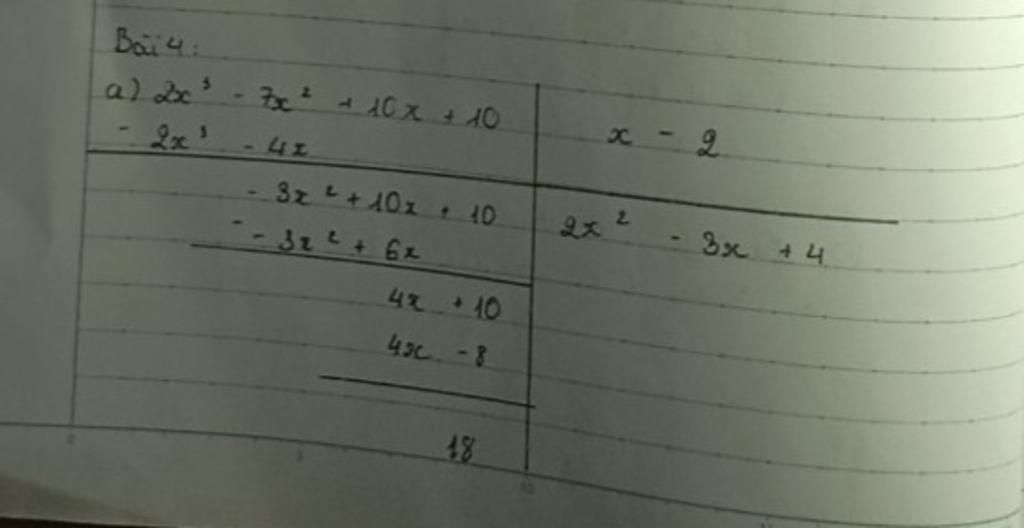 Bài 4:
a) 2x³ - 7x² + 10x + 10 | x - 2
- 2x³ - 4x
- 3x² + 10x + 10 | 2x² - 3x + 4
- - 3x² + 6x
4x + 10
4x - 8
18